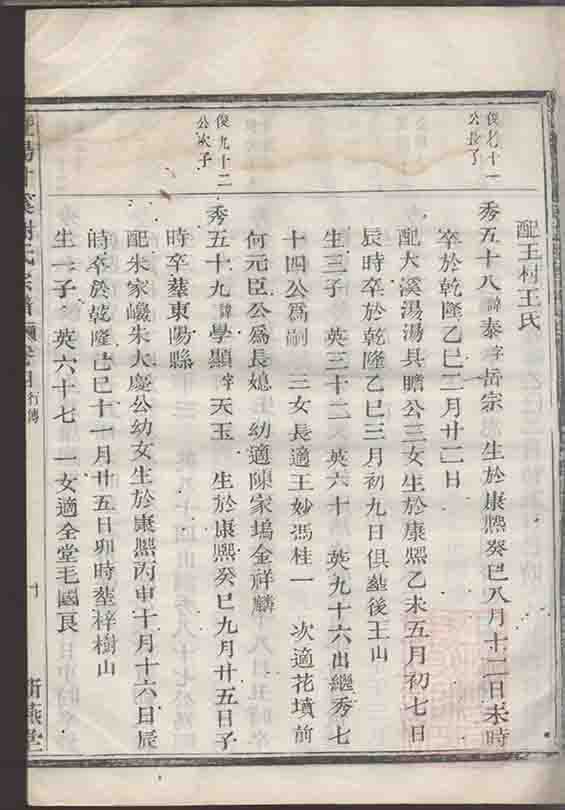 配王村王氏
俊七十一
公長子
秀五十八諱泰字岳宗 生於康熙癸巳八月十二日未時
卒於乾隆乙巳二月廿二日
配大溪湯湯具瞻公三女生於康熙乙未五月初七日
辰時卒於乾隆乙巳三月初九日俱塟後王山
生三子 英三十二 英六十 英九十六出繼秀七
十四公為嗣 三女長適王妙馮桂一 次適花墳前
何元臣公為長媳 幼適陳家塢金祥麟
俊九十二
公次子
秀五十九諱學顯字天玉 生於康熙癸巳九月廿五日子
時卒塟東陽縣
配朱家巉朱大慶公幼女生於康熙丙申十月十六日辰
時卒於乾隆己巳十一月廿五日卯時塟梓樹山
生一子 英六十七 一女適全堂毛國良
氏宗譜
行傳
十